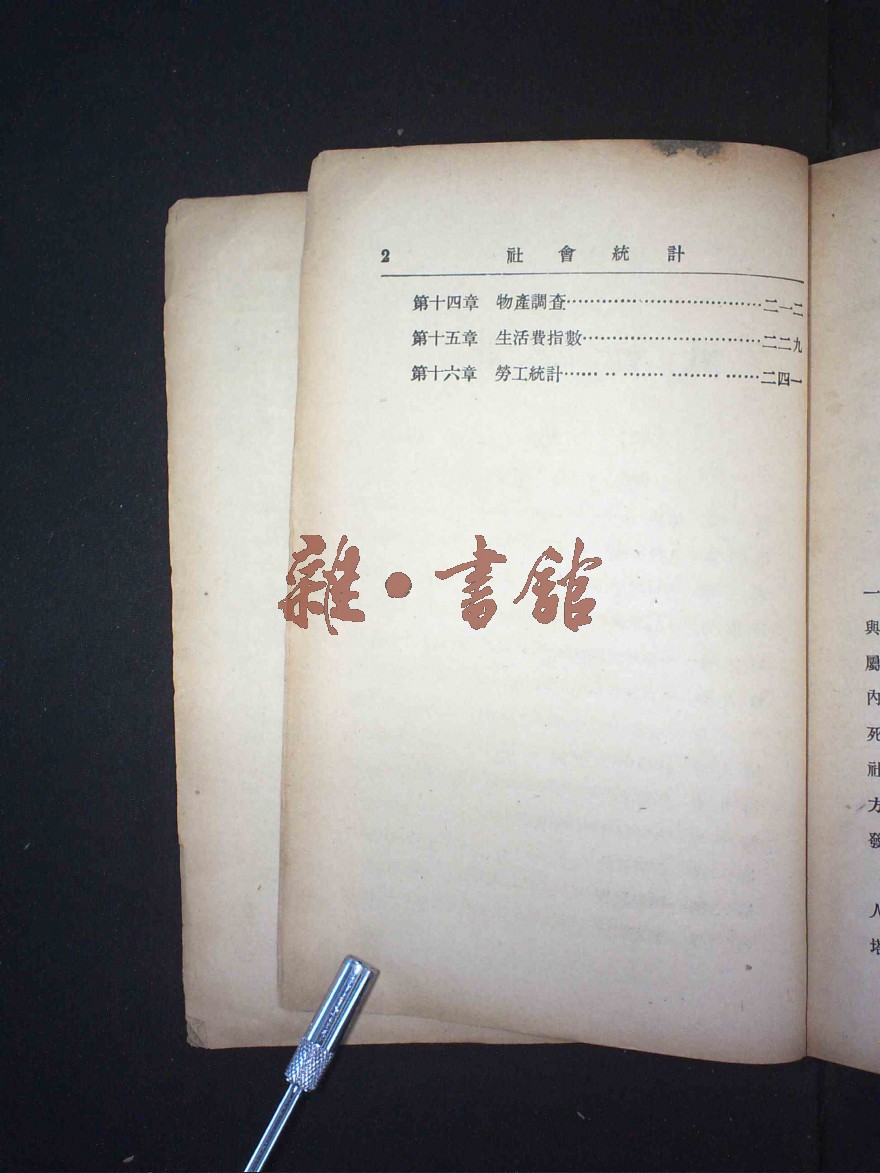 2 社會統計
第十四章 物產調查……………………………二一二
第十五章 生活費指數…………………………二二九
第十六章 勞工統計…… ‥ ……… ……… ……二四一
雜·書館
一
與
屬
內
死
社
方
發
人
塔